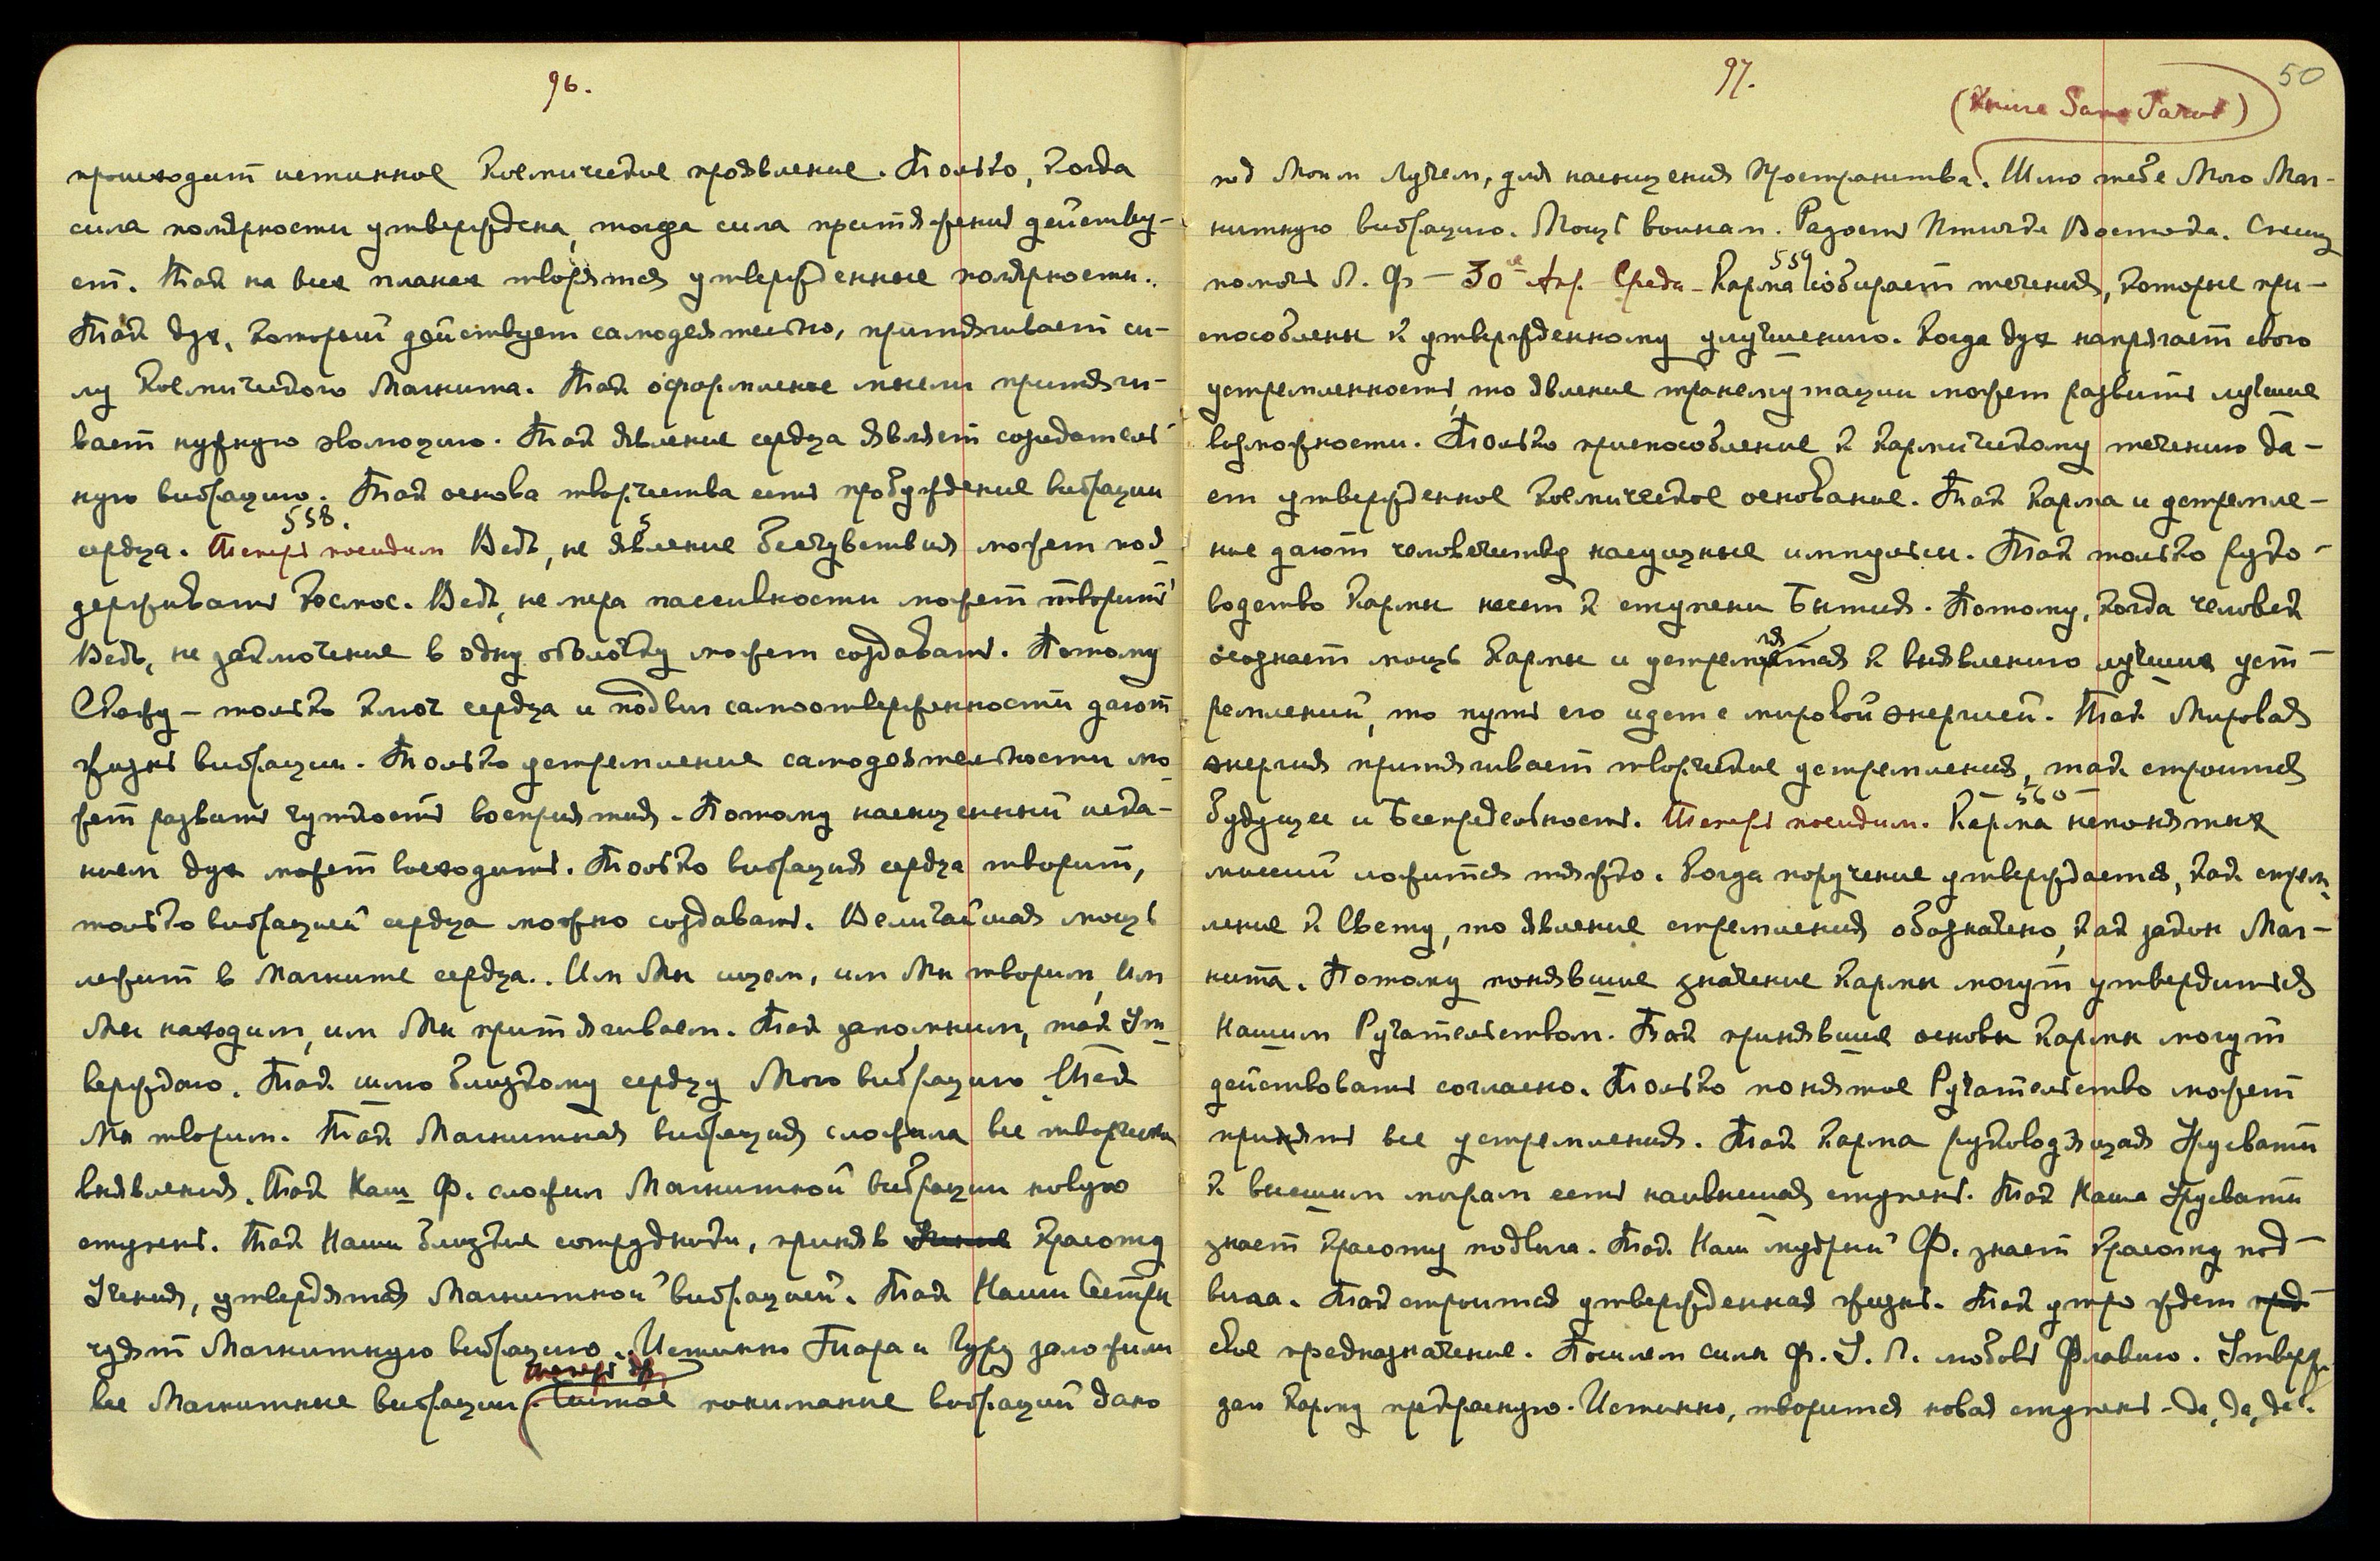 96.
происходит истинное космическое проявление. Только, когда
сила полярности утверждена, тогда сила притяжения действу-
ет. Так на всех планах творятся утвержденные полярности.
Так дух, который действует самодеятельно, притягивает си-
лу Космического Магнита. Так оформление мысли притяги-
вает нужную эволюцию. Так явление сердца являет созидатель-
ную вибрацию. Так основа творчества есть пробуждение вибрации
558.
сердца. Теперь посидим Ведь, не явление бесчувствия может под-
держивать Космос. Ведь, не мера пассивности может творить
Ведь, не заключение в одну оболочку может создавать. Потому
Скажу – только ключ сердца и подвиг самоотверженности дают
жизнь вибрации. Только устремление самодеятельности мо-
жет развить чуткость восприятия. Потому насыщенный иска-
нием дух может восходить. Только вибрация сердца творит,
только вибрацией сердца можно создавать. Величайшая мощь
лежит в магните сердца. Им Мы ищем, им Мы творим, им
Мы находим, им Мы притягиваем. Так запомним, так Ут-
верждаю. Так шлю близкому сердцу Мою вибрацию. Так
Мы творим. Так Магнитная вибрация сложила все творческие
выявления. Так Наш Ф. сложил Магнитной вибрации новую
ступень. Так Наши близкие сотрудники, приняв красоту
Учения, утвердятся Магнитной вибрацией. Так Наши Сестры
чуят Магнитную вибрацию. Истинно Тара и Гуру заложили
все Магнитные вибрации. Чистое понимание вибраций дано
97.
50
под Моим Лучем, для насыщения Пространства. Шлю тебе Мою Маг-
нитную вибрацию. Мощь воинам. Радость Птичке Востока. Спешу
559
помочь Л. Ф – 30е Апр – Среда – Карма собирает течения, которые при-
способлены к утвержденному улучшению. Когда дух напрягает свою
устремленность, то явление трансмутации может развить лучшие
возможности. Только приспособление к кармическому течению да-
ет утвержденное космическое основание. Так карма и устремле-
ние дают человечеству насущные импульсы. Так только руко-
водство кармы несет к ступени Бытия. Потому, когда человек
осознает мощь кармы и устремится к выявлению лучших уст-
ремлений, то путь его идет с мировой энергией. Так Мировая
энергия притягивает творческие устремления, так строится
– 560 –
будущее и Беспредельность. Теперь посидим. Карма непонятых
миссий ложится тяжко. Когда поручение утверждается, как стрем-
ление к Свету, то явление стремления обозначено, как закон Маг-
нита. Потому понявшие значение кармы могут утвердиться
Нашим Ручательством. Так принявшие основы кармы могут
действовать согласно. Только понятое Ручательство может
принять все устремления. Так карма руководящая Урусвати
к высшим мирам есть наивысшая ступень. Так Наша Урусвати
знает красоту подвига. Так Наш мудрый Ф. знает красоту под-
вига. Так строится утвержденная жизнь. Так утро ждет
свое предназначение. Пошлем силы Ф. У. Л. любовь Флавию. Утверж-
даю Карму прекрасную. Истинно, творится новая ступень – да, да, да!.